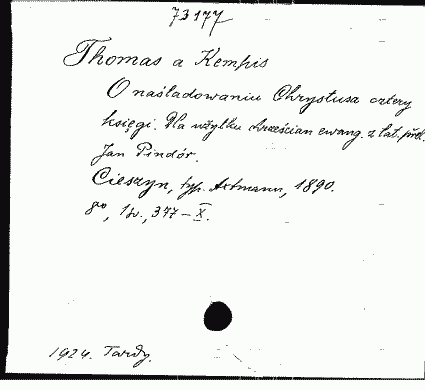 73177
Thomas a Kempis
O naśladowaniu Chrystusa cztery
księgi. Dla użytku chrześcian ewang. z łat. przeł.
Jan Pindór.
Cieszyn, typ. Artmann, 1890.
8º, 1 w., 377 – X.
1924. Tardy.